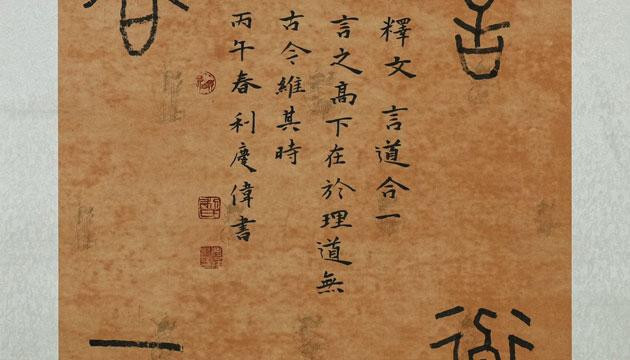 言道
釋文 言道合一
言之高下在於理道無
古今維其時
丙午春利慶偉書
合一